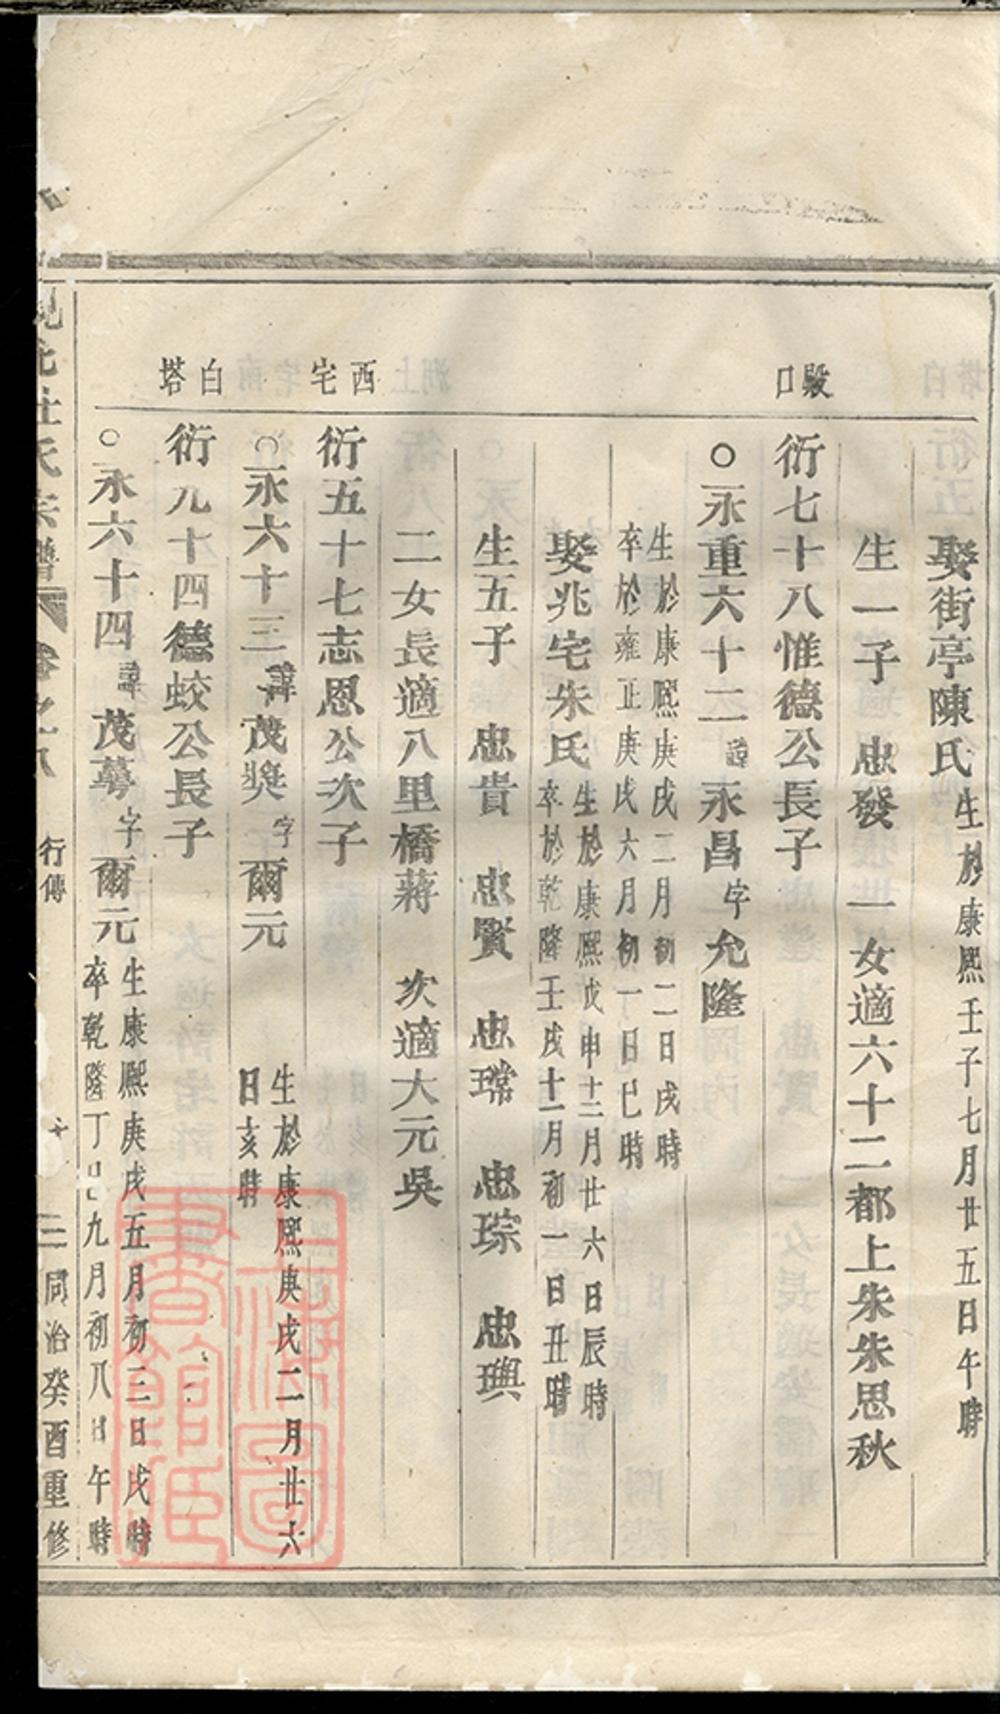 娶街亭陳氏生於康熙壬子七月廿五日午時
生一子 忠發 一女適六十二都上朱朱思秋
殿口
衍七十八惟德公長子
○永重六十二諱永昌字允隆
生於康熙庚戌二月初二日戌時
卒於雍正庚戌六月初一日巳時
娶兆宅朱氏生於康熙戊申十二月廿六日辰時
卒於乾隆壬戌十一月初一日丑時
生五子 忠貴 忠賢 忠瑺 忠琮 忠璵
二女長適八里橋蔣 次適大元吳
西宅
衍五十七志恩公次子
○永六十三諱茂奬字爾元
生於康熙庚戌二月廿六
日亥時
白塔
衍九十四德蛟公長子
○永六十四諱茂蕚字爾元生康熙庚戌五月初三日戌時
卒乾隆丁巳九月初八日午時
杜氏宗譜 卷之八 行傳 三 同治癸酉重修
上海圖書館藏